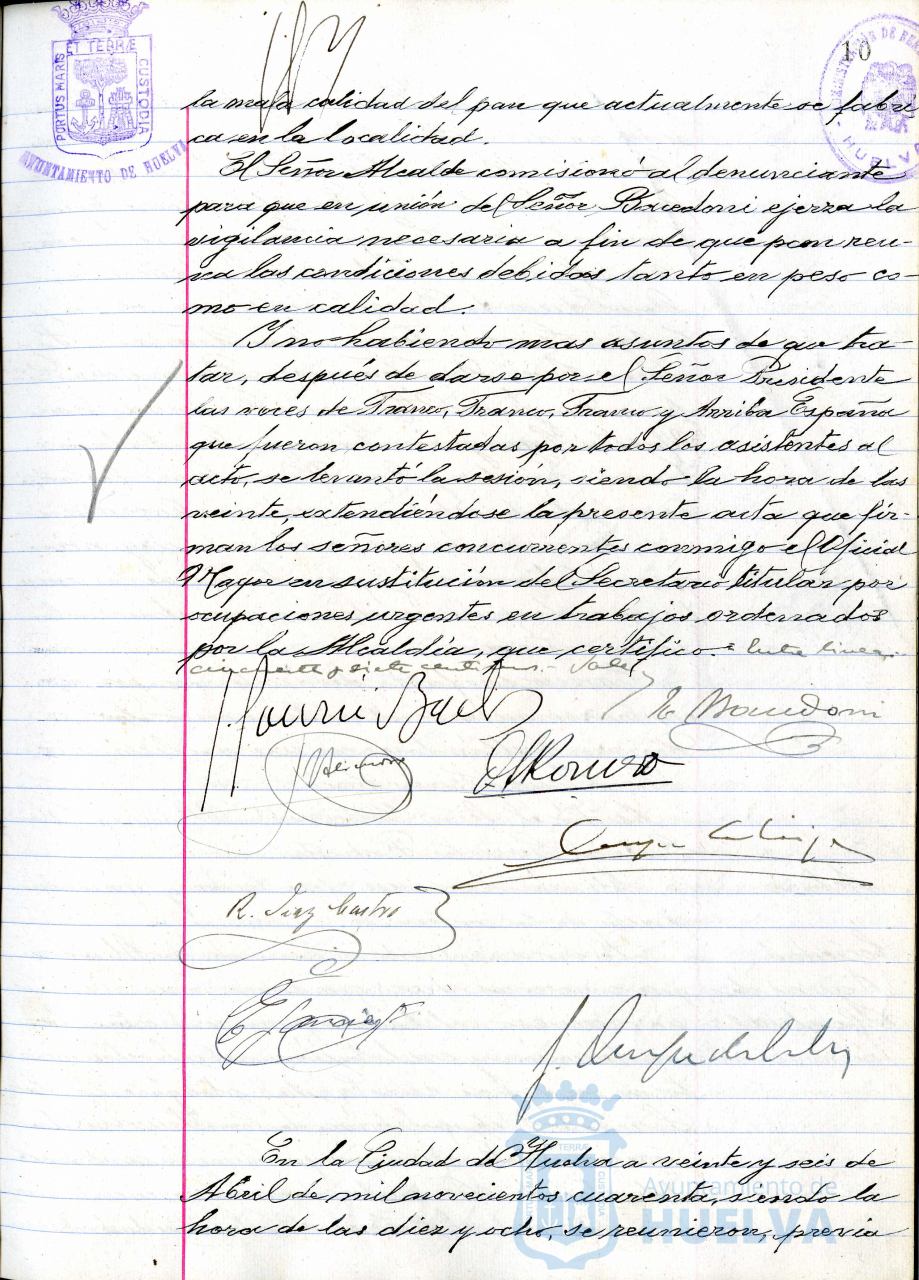 10
PORTUS MARIS ET TERRÆ CUSTODIA
AYUNTAMIENTO DE HUELVA
la mala calidad del pan que actualmente se fabri
ca en la localidad.
El Señor Alcalde comisionó al denunciante
para que en unión del Señor Bacedoni ejerza la
vigilancia necesaria a fin de que pan reu-
na las condiciones debidas tanto en peso co-
mo en calidad.
Y no habiendo mas asuntos de que tra-
tar, después de darse por el Señor Presidente
las voces de Franco, Franco, Franco y Arriba España
que fueron contestadas por todos los asistentes al
acto, se levantó la sesión, siendo la hora de las
veinte, extendiéndose la presente acta que fir-
man los señores concurrentes conmigo el Oficial
Mayor en sustitución del Secretario titular por
ocupaciones urgentes en trabajos ordenados
por la Alcaldía, que certifico = Entre lineas
cincuenta y siete centimos.- Vale
R. Diaz Castro
En la Ciudad de Huelva a veinte y seis de
Abril de mil novecientos cuarenta, siendo la
hora de las diez y ocho, se reunieron, previa
Ayuntamiento de
HUELVA